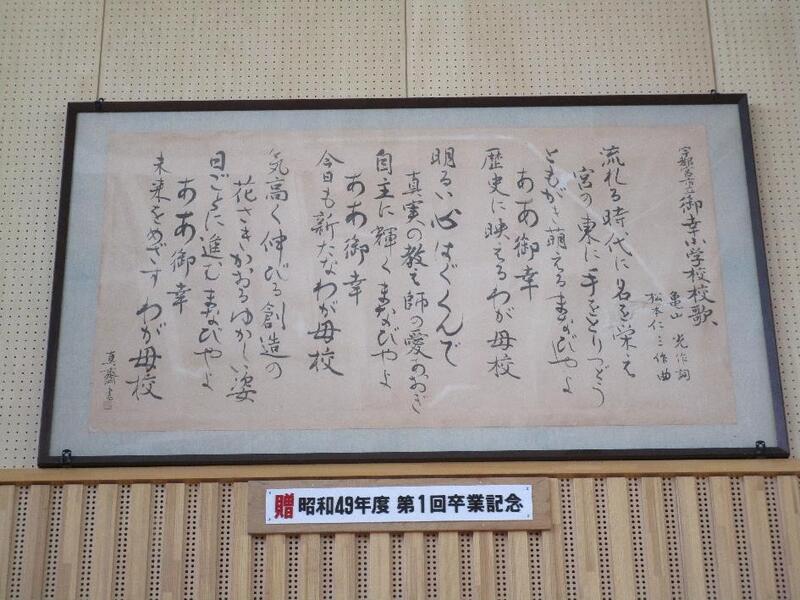 宇都宮市立御幸小学校校歌
亀山 光作詞
松本仁三作曲
流れる時代に名を栄え
宮の東に手をとりつどう
ともがき萌えるまなびやよ
ああ御幸
歴史に映えるわが母校
明るい心はぐくんで
真実の教え師の愛あおぎ
自主に輝くまなびやよ
ああ御幸
今日も新たなわが母校
気高く伸びる創造の
花さきかおるゆかしい姿
日ごとに進むまなびやよ
ああ御幸
未来をめざすわが母校
贈 昭和49年度 第1回卒業記念